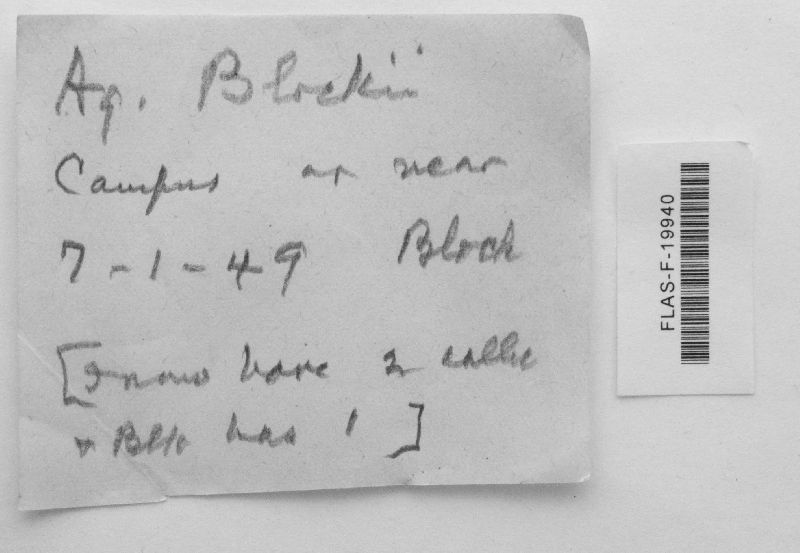 Ag. Blockii
Campus or near
7-1-49 Block
[I now have 2 collc
+ Blk has 1]
FLAS-F-19940